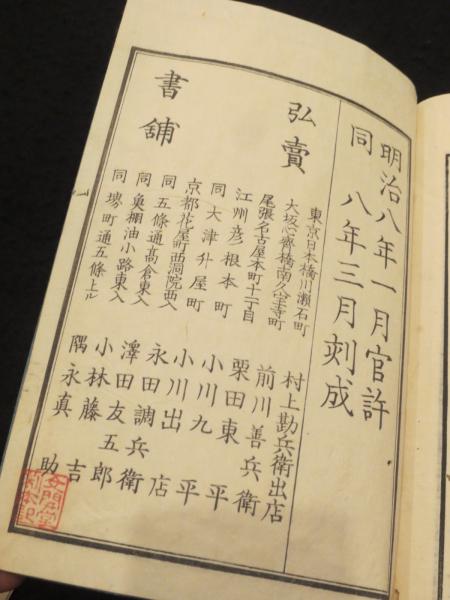 明治八年一月官許
同 八年三月刻成
弘賣
東京日本橋川瀬石町 村上勘兵衛出店
大坂心齋橋南久宝寺町 前川善兵衛
尾張名古屋本町十一丁目 栗田東平
江州彦根本町 小川九平
同大津升屋町 小川出店
京都花屋町西洞院西入 永田調兵衛
書舗
同五條通髙倉東入 澤田友五郎
同魚棚油小路東入 小林藤吉
同堺町通五條上ル 隅永真助